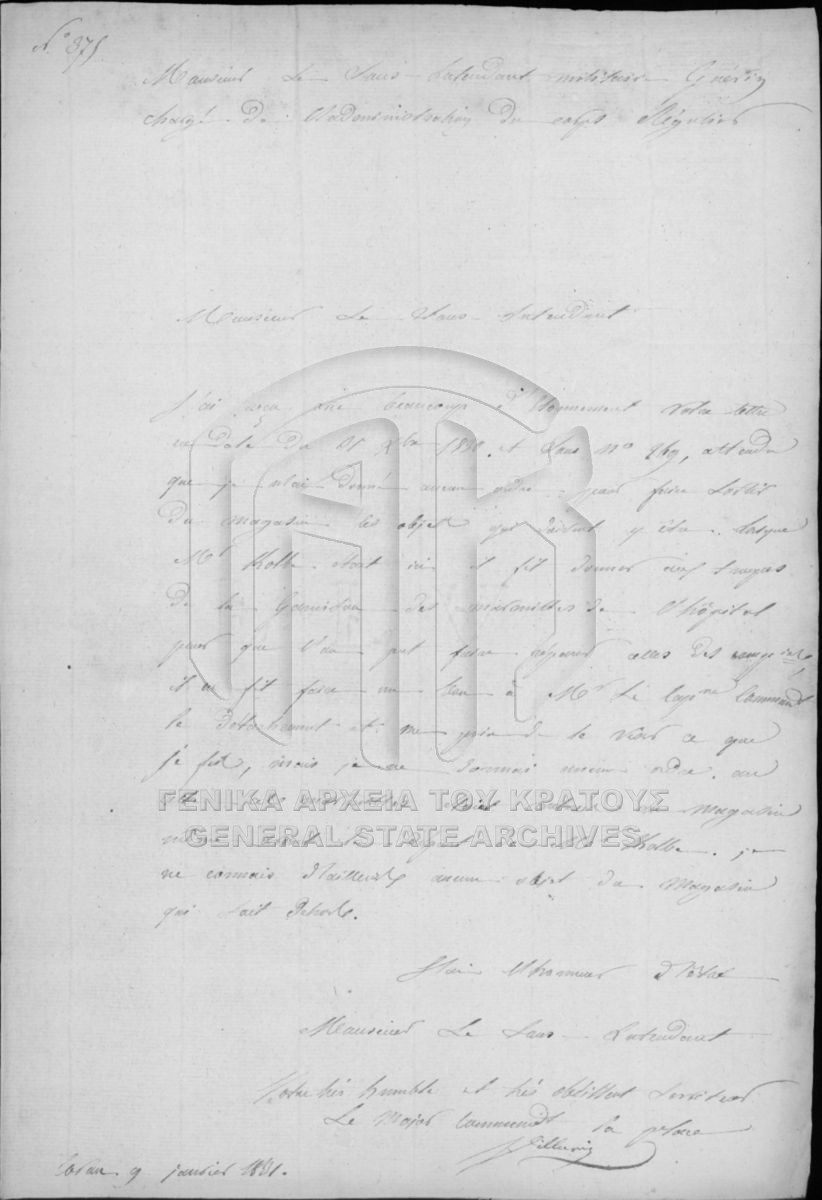 N.° 375
Monsieur Le Sous-Intendant militaire Guérin
chargé de l'administration du corps Régulier
Monsieur Le Sous-Intendant
J'ai reçu avec beaucoup d'étonnement votre lettre
en date du 31 Xbre 1830. et sous n° 269, attendu
que je n'ai donné aucun ordre pour faire sortir
du magasin les objets qui doivent y être. lorsque
Mr Kolbe était ici il fit donner aux troupes
de la Garnison des marmittes de l'hôpital
pour que l'on put faire réparer celles des
il en fit faire un bon à Mr Le Capne Commandt
le Détachement et me pria de le viser ce que
je fis, mais je ne donnai aucun ordre. 
ΓΕΝΙΚΑ ΑΡΧΕΙΑ ΤΟΥ ΚΡΑΤΟΥΣ
magasin
GENERAL STATE ARCHIVES
avant le départ de Mr Kolbe. je
ne connais d'ailleurs aucun objet du Magasin
qui soit dehors.
J'ai l'honneur d'être
Monsieur Le Sous-Intendant
Votre très humble et très obéissant serviteur
Le Major Commandt la place
9 janvier 1831.